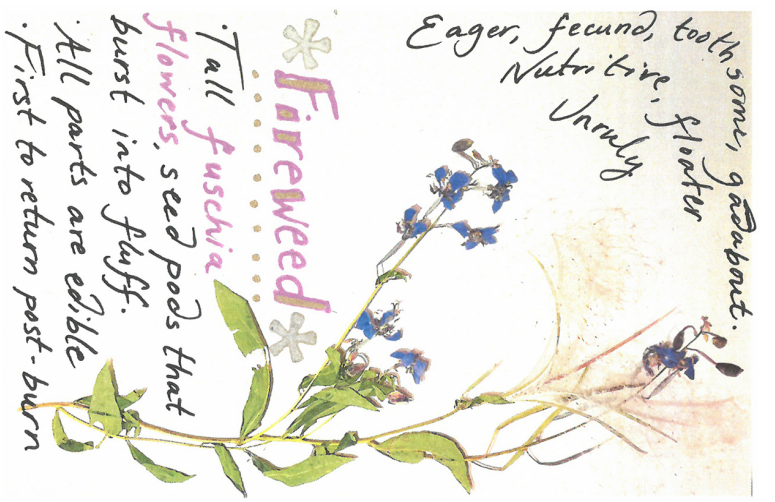 Eager, fecund, toothsome, gadabout.
Nutritive, floater
Unruly
*Fireweed*
·Tall fuschia
flowers, seed pods that
burst into fluff.
·All parts are edible
·First to return post-burn